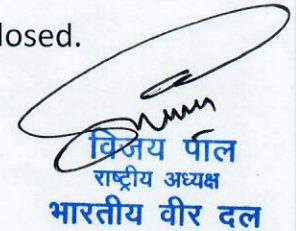 losed.
विजय पाल
राष्ट्रीय अध्यक्ष
भारतीय वीर दल